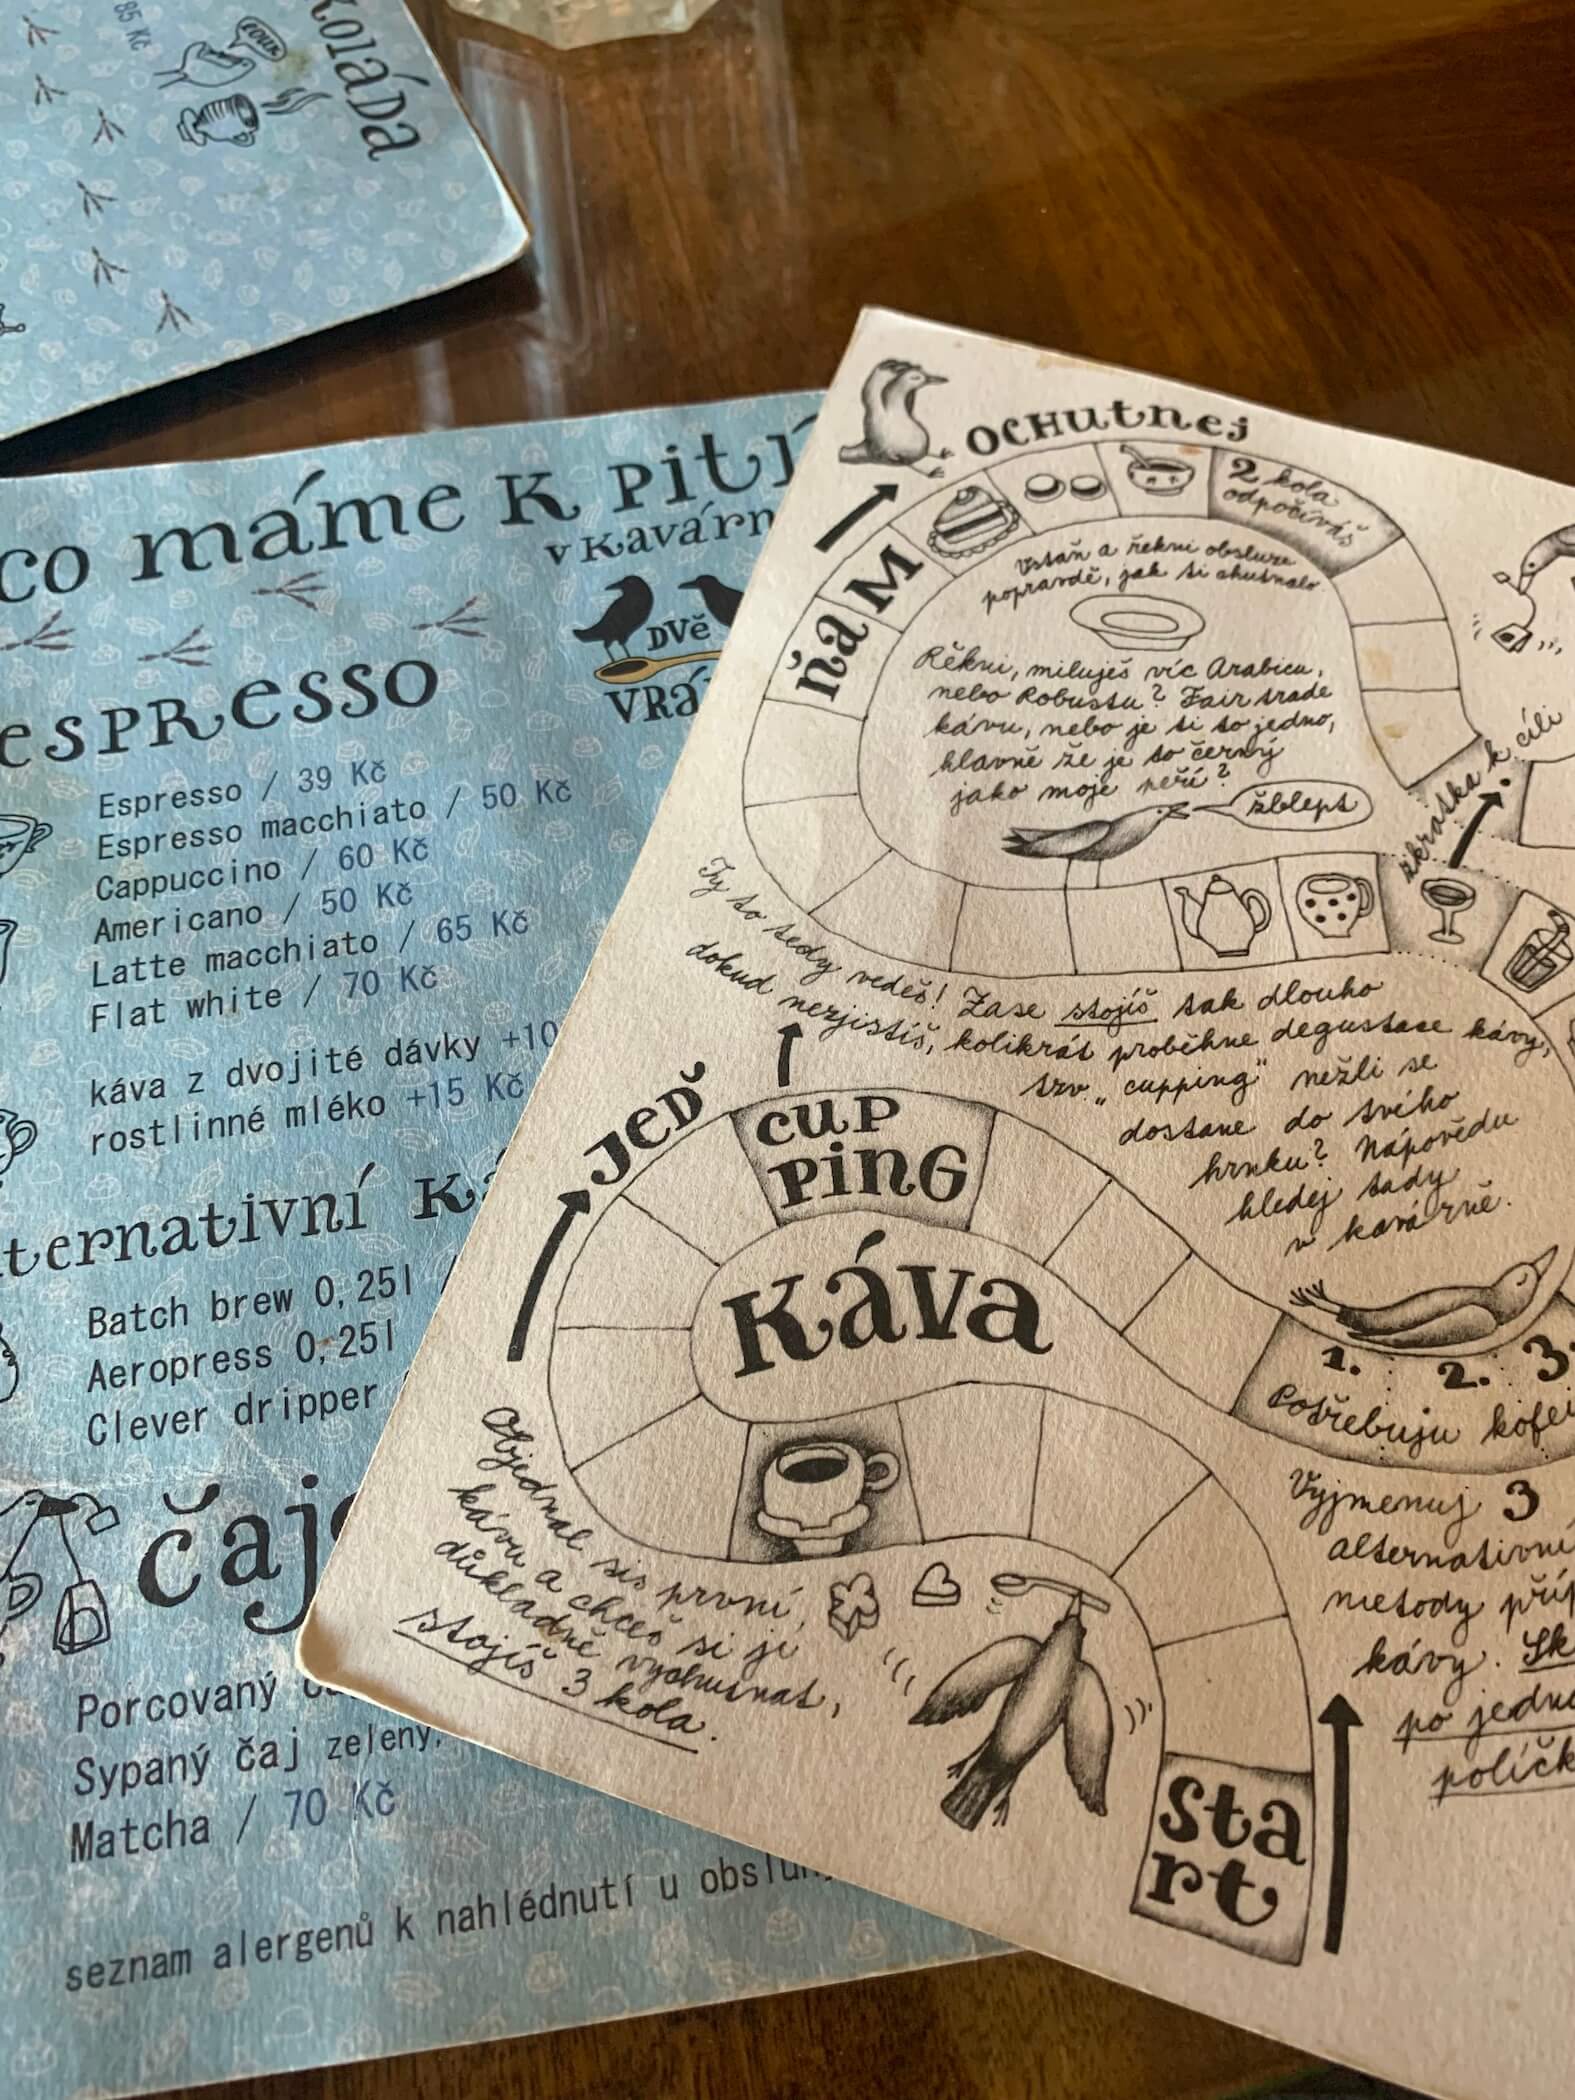 85 Kč
co máme k pití
DVě
espresso
Espresso / 39 Kč
Espresso macchiato / 50 Kč
Cappuccino / 60 Kč
Americano / 50 Kč
Latte macchiato / 65 Kč
Flat white / 70 Kč
káva z dvojité dávky +10
rostlinné mléko +15 Kč
Batch brew 0,25l
Aeropress 0,25l
Clever dripper
Porcovaný
Sypaný čaj zelený,
Matcha / 70 Kč
seznam alergenů k nahlédnutí u obsluhy
OCHutnej
ŇaM
2 kola
odpočíváš
Vstaň a řekni obsluze
popravdě, jak ti chutnalo
Řěkni, miluješ víc Arabicu,
nebo Robustu? Fair trade
kávu, nebo je ti to jedno,
hlavně že je to černý
jako moje peří?
žblept
zkratka k cíli
Ty to tedy vedeš! Zase stojíš tak dlouho
dokud nezjistíš, kolikrát proběhne degustace kávy,
tzv. „cupping“ nežli se
dostane do tvého
hrnku? Nápovědu
hledej tady
v kavárně.
JeĎ
cup
PinG
Káva
1. 2. 3.
Potřebuju
Vyjmenuj 3
alternativní
metody
kávy.
po
Objednal sis první
kávu a chceš si ji
důkladně vychutnat,
stojíš 3 kola.
sta
rt